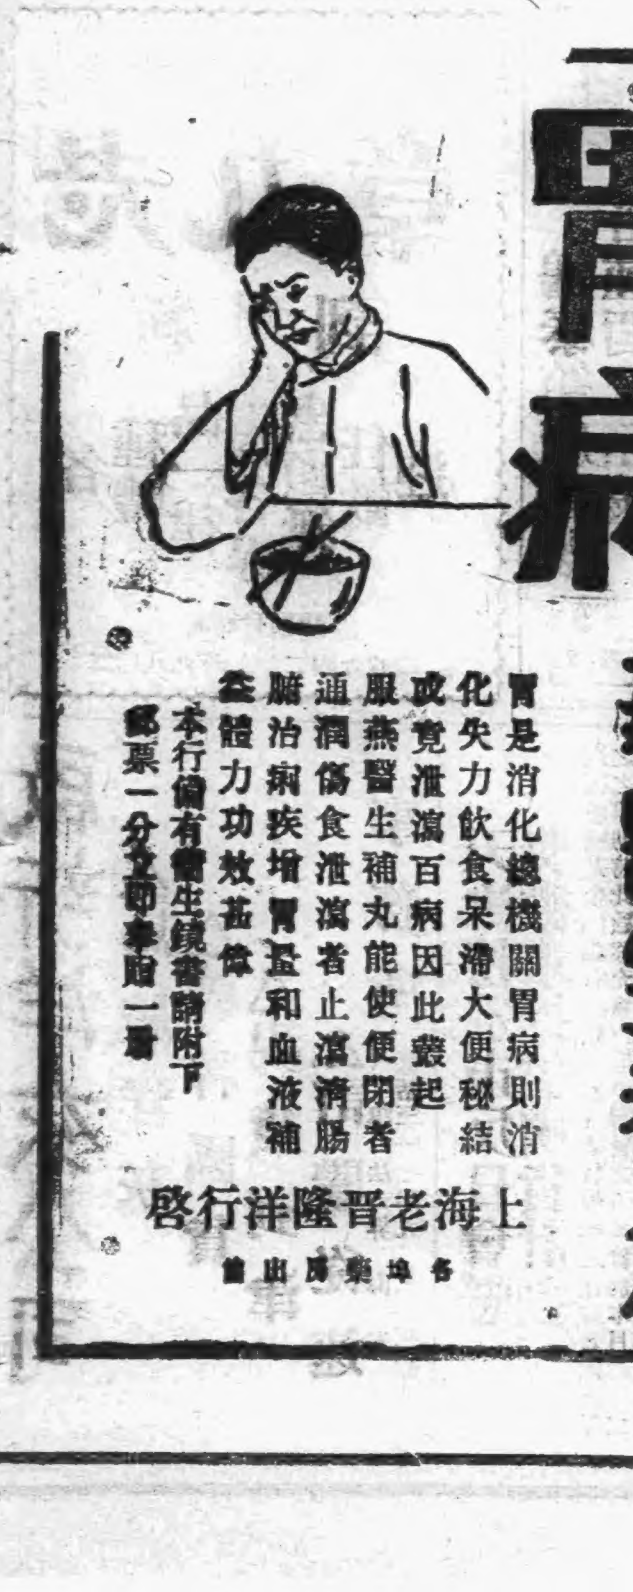 胃病
胃是消化總機關胃病則消
化失力飲食呆滯大便秘結
或竟泄瀉百病因此叢起
服燕醫生補丸能使便閉者
通潤傷食泄瀉者止瀉濟腸
腑治痢疾增胃量和血液補
益體力功效甚偉
本行備有衛生鏡書請附下
郵票一分立即奉贈一書
上海老晋隆洋行啓
各埠藥房出售